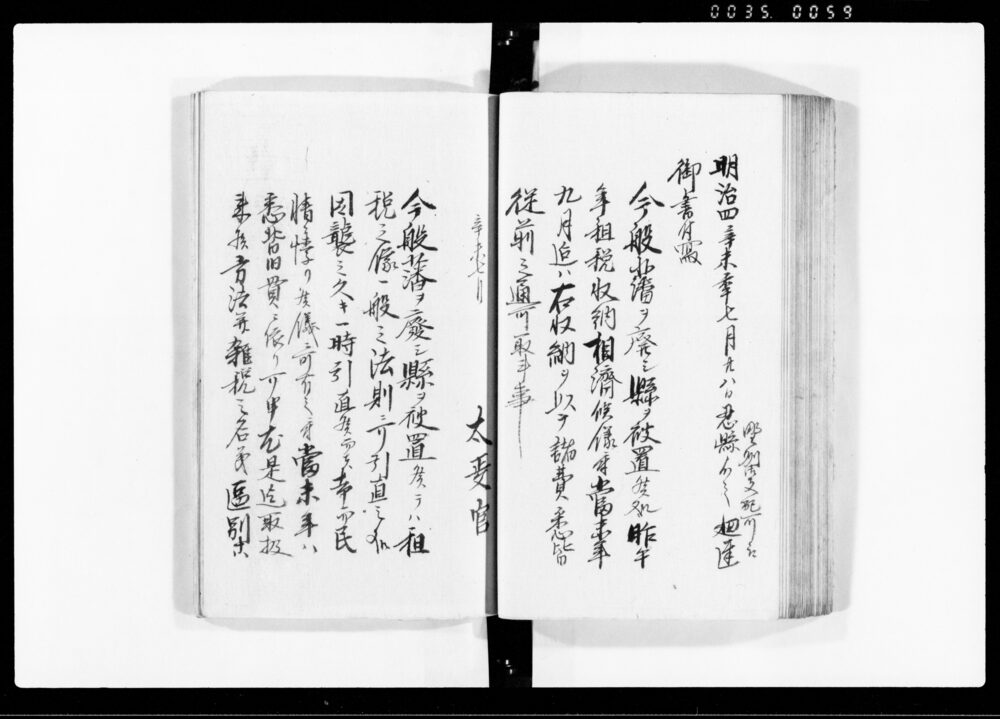 0035 0059
明治四辛未年七月廿八日忍縣ゟ之廻達
御書付寫
今般藩ヲ廃シ縣ヲ被置候処昨午
年租税収納相濟候儀ニ付當未年
九月迄ハ右収納ヲ以テ諸費悉皆
従前之通可取斗事
辛未七月
太政官
今般藩ヲ廢シ縣ヲ被置候テハ租
税之儀一般之法則ニ可引直之処
因襲之久キ一時引直候而ハ幸而民
情ニ悖リ候儀可有之ニ付當未年ハ
悉皆旧貫ニ依リ可申尤是迄取扱
来候方法并雑税之名義區別等